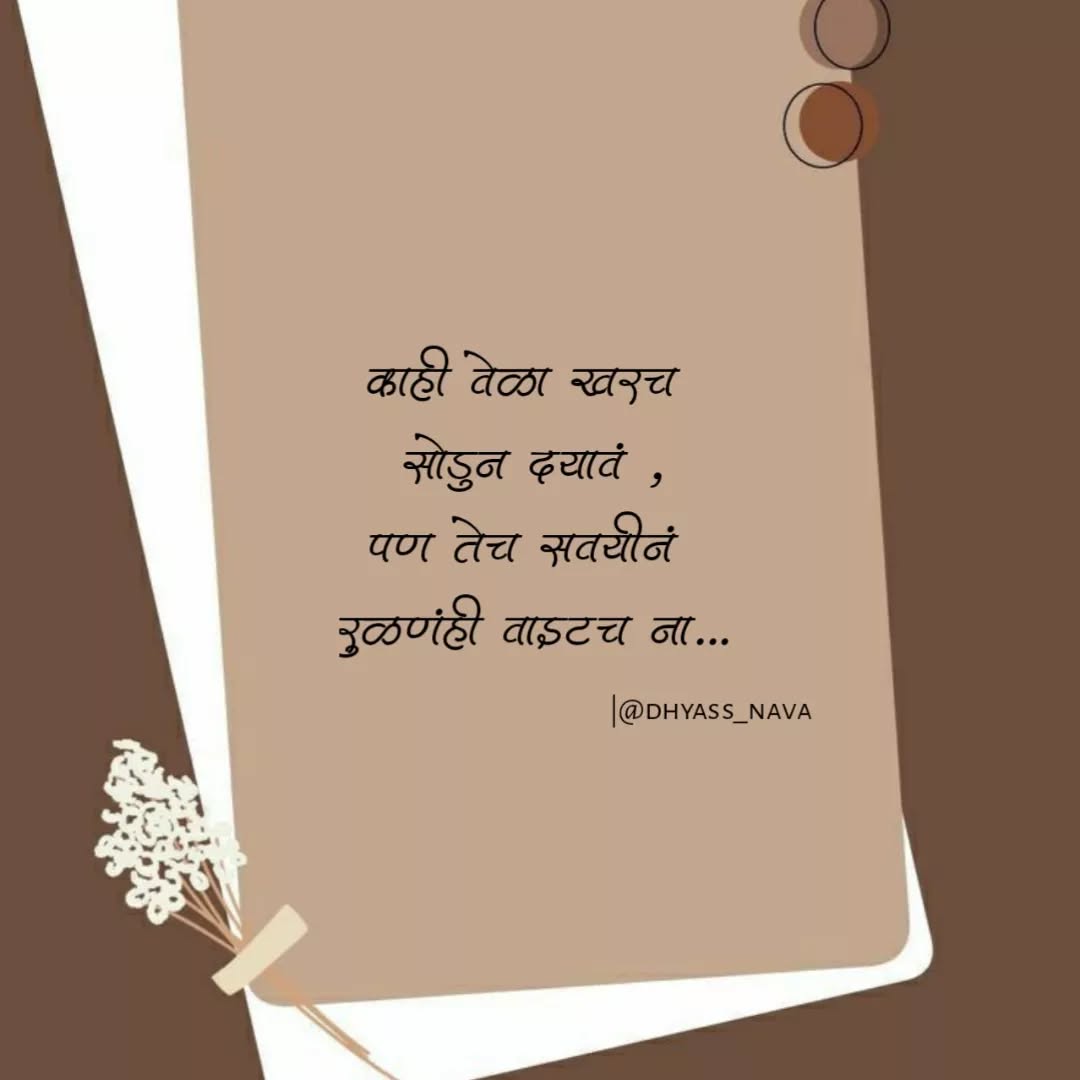 काही वेळा खरच
सोडुन दयावं ,
पण तेच सवयीनं
रुळणंही वाइटच ना...
|@DHYASS_NAVA